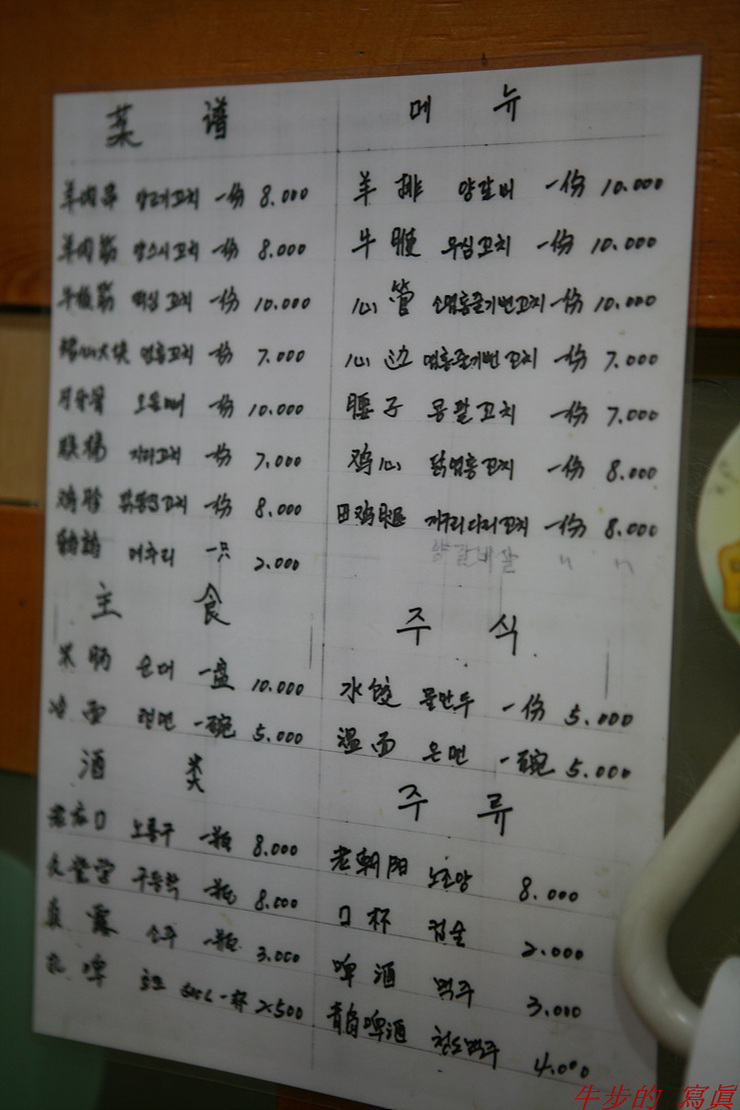 菜 谱 메 뉴
羊肉串 양고기꼬치 一份 8.000 羊 排 양갈비 一份 10.000
羊肉筋 一份 8.000 牛 鞭 우심꼬치 一份 10.000
牛板筋 떡심꼬치 一份 10.000 心 管 소염통줄기변꼬치 一份 10.000
염통꼬치 一份 7.000 心 边 염통줄기변꼬치 一份 7.000
月牙骨 오돌뼈 一份 10.000 腰子 콩팥꼬치 一份 7.000
一份 7.000 鸡心 닭염통꼬치 一份 8.000
닭똥집꼬치 一份 8.000 田鸡腿 개구리다리꼬치 一份 8.000
鹌鹑 메추리 一只 2.000 양갈비살 " "
主 食 주 식
米 肠 순대 一盘 10.000 水饺 물만두 一份 5.000
冷 面 랭면 一碗 5.000 温面 온면 一碗 5.000
酒 类 주 류
老龙口 노룡구 一瓶 8.000 老朝阳 노조양 8.000
一瓶 8.000 口杯 컵술 2.000
真 露 소주 一瓶 3.000 啤酒 맥주 3.000
扎 啤 500L 一杯 2500 青岛啤酒 청도맥주 4.000
牛步的 寫眞